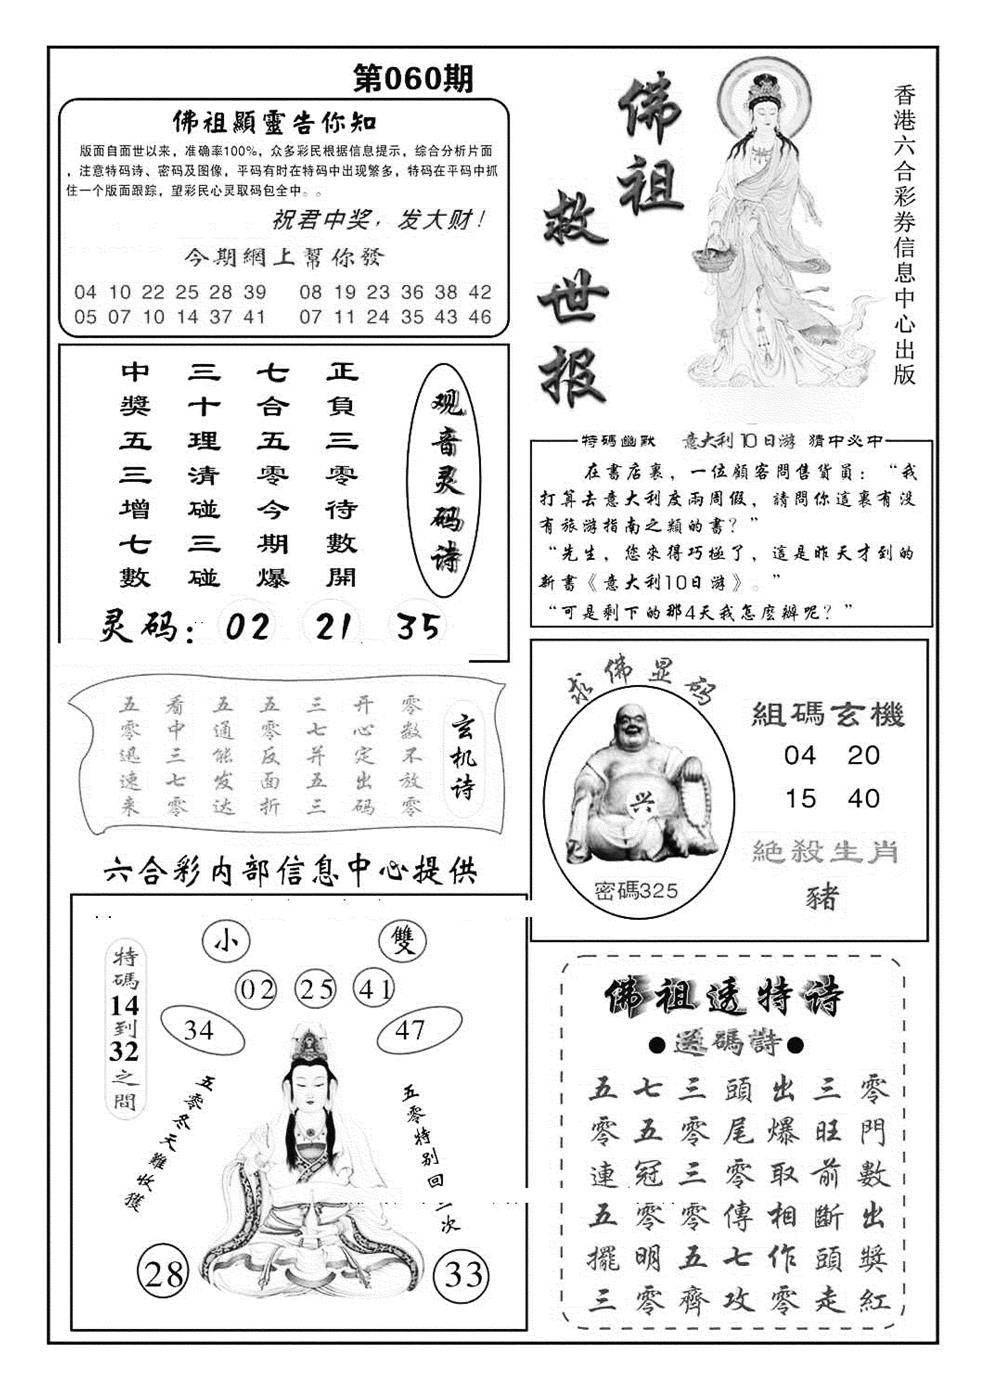 第060期
佛祖顯靈告你知
版面自面世以来，准确率100%，众多彩民根据信息提示，综合分析片面
，注意特码诗、密码及图像，平码有时在特码中出现繁多，特码在平码中抓
住一个版面跟踪，望彩民心灵取码包全中。。
祝君中奖，发大财！
今期網上幫你發
04 10 22 25 28 39 08 19 23 36 38 42
05 07 10 14 37 41 07 11 24 35 43 46
佛祖
救世报
香港六合彩券信息中心出版
观音灵码诗
正負三零待數開
七合五零今期爆
三十理清碰三碰
中獎五三增七數
灵码：02 21 35
特碼幽默 意大利10日游 猜中必中
在書店裏，一位顧客問售貨員：“我
打算去意大利度兩周假，請問你這裏有沒
有旅游指南之類的書？”
“先生，您來得巧極了，這是昨天才到的
新書《意大利10日游》。”
“可是剩下的那4天我怎麼辦呢？”
玄机诗
零数不放零
开心定出码
三七并五三
五零反面折
五通能发达
看中三七零
五零迅速来
求佛显码
兴
密碼325
組碼玄機
04 20
15 40
絕殺生肖
豬
六合彩内部信息中心提供
小 雙
02 25 41
34 47
特碼14到32之間
五零冬天難收獲
五零特别回 次
28 33
佛祖透特诗
●送碼詩●
五七三頭出三零
零五零尾爆旺門
連冠三零取前數
五零零傳相斷出
擺明五七作頭獎
三零齊攻零走紅